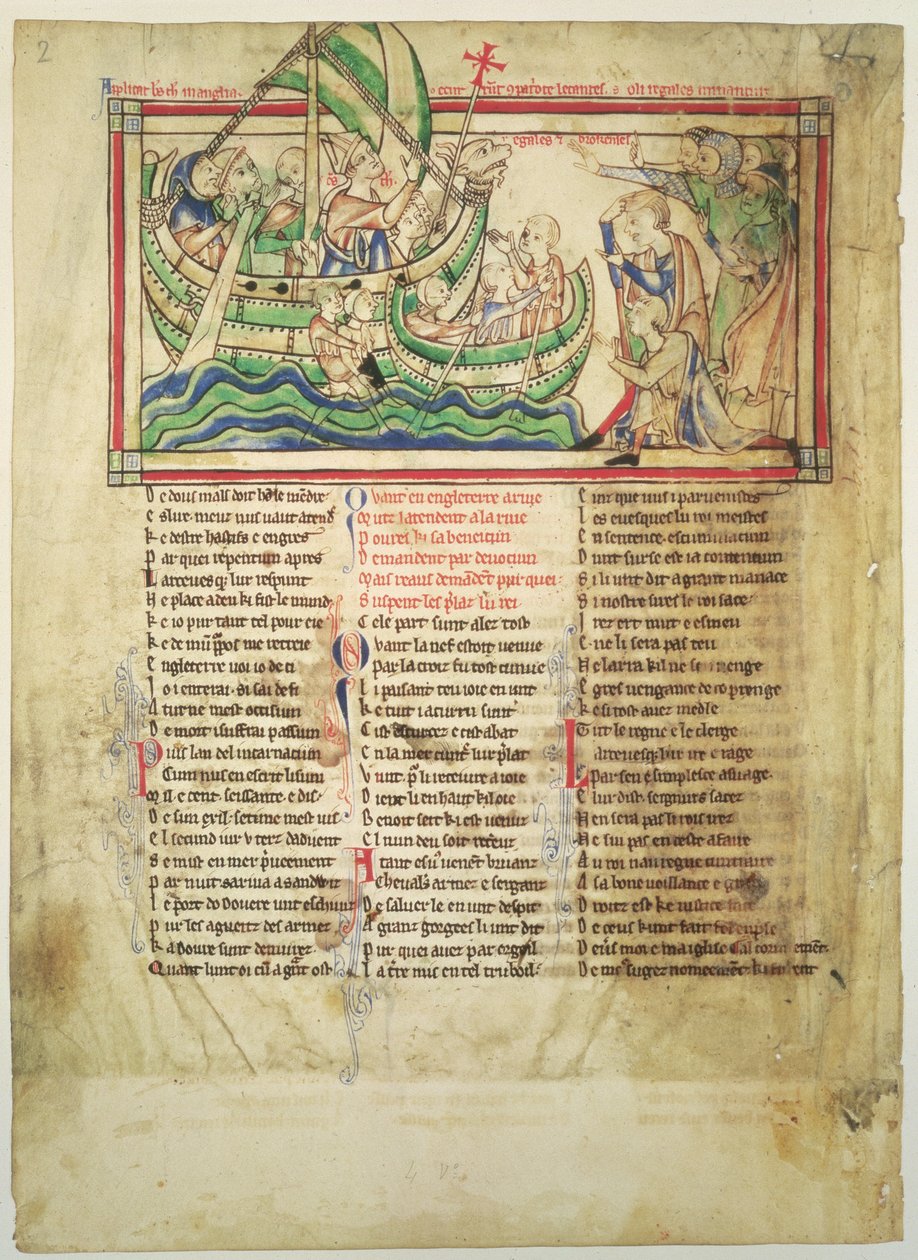 2
Applicat bs th in anglia.
egales & brokenses
s th.
De dous mals doit hõe mẽdre
Eslire. meuz nus vaut atendr̃
Ke destre hastifs e engres
Par quei repentum apres
Larceuesq; lur respunt
Ne place a deu ki fist le mund
Ke io pur taut tel pour eie
Ke de mũ ꝓpos me retreie
Engleterre uoi io de ci
Io i enterai. bi sai de fi
A turne mest occisium
De mort i suffrai passium
Puis lan del incarnaciun
Cum nus en escrit lisum
Mil e cent. seissante. e dis.
De sun exil. setime mest uis
El secund iur u terz dadvent
Se mist en mer pͥuecement
Par nuit. sariva a sandwiz
Le port do Dovere unt eschiuiz
Pur les agueitz des armez
Ka dovre sunt venuz
Quant lunt oi cũ a gͣnt ost
Quant en engleterre ariue
Mutz latendent a la riue
Poures ki sa beneiciun
Demandent par devociun
Mais reaus demãdẽt pur quei
Suspent les pͬlaz lu rei
Cele part sunt alez tost
Quant la nef estoit venue
Par la croiz fu tost cunue
Li paisant teu ioie en unt
Ke tuit i acurru sunt
Cist esturcez e cist abat
En la mer cunt̃ lur pͬlat
Vunt pͬ li receivre a ioie
Dient li en haut ki loie
Benoit seit ki est venuz
El nun deu soit receuz
Atant es uͦ venẽt bruianz
Chevalͬs armez e serganz
De saluer le en unt despit
A granz gorgees li unt dit
Pur quei avez par orgoil
La tͬre mis en tel truboil
Cinz que vus i parvenistes
Les evesques lu roi meistes
En sentence. escuminaciun
Dunt surse est ia contenciun
Si li unt dit a grant manace
Si nostre sires le roi sace
Irez ert mut e esmeu
E ne li sera pas teu
Ne laira kil ne se menge
Egres vengance de vo prenge
Ke si tost avez medle
Tut le regne e le clerge
Larcevesq; lur ire e rage
Par sen e simplesce asuage.
E lur dist. seignurs sacez
Nen sera pas li rois irez
Ne sui pas en ceste afaire
Au roi nau regne cuntraire
A sa bone voillance e
Droitz est ke iustice face
De ceus kunt fait tel
De deu e moi e ma iglise